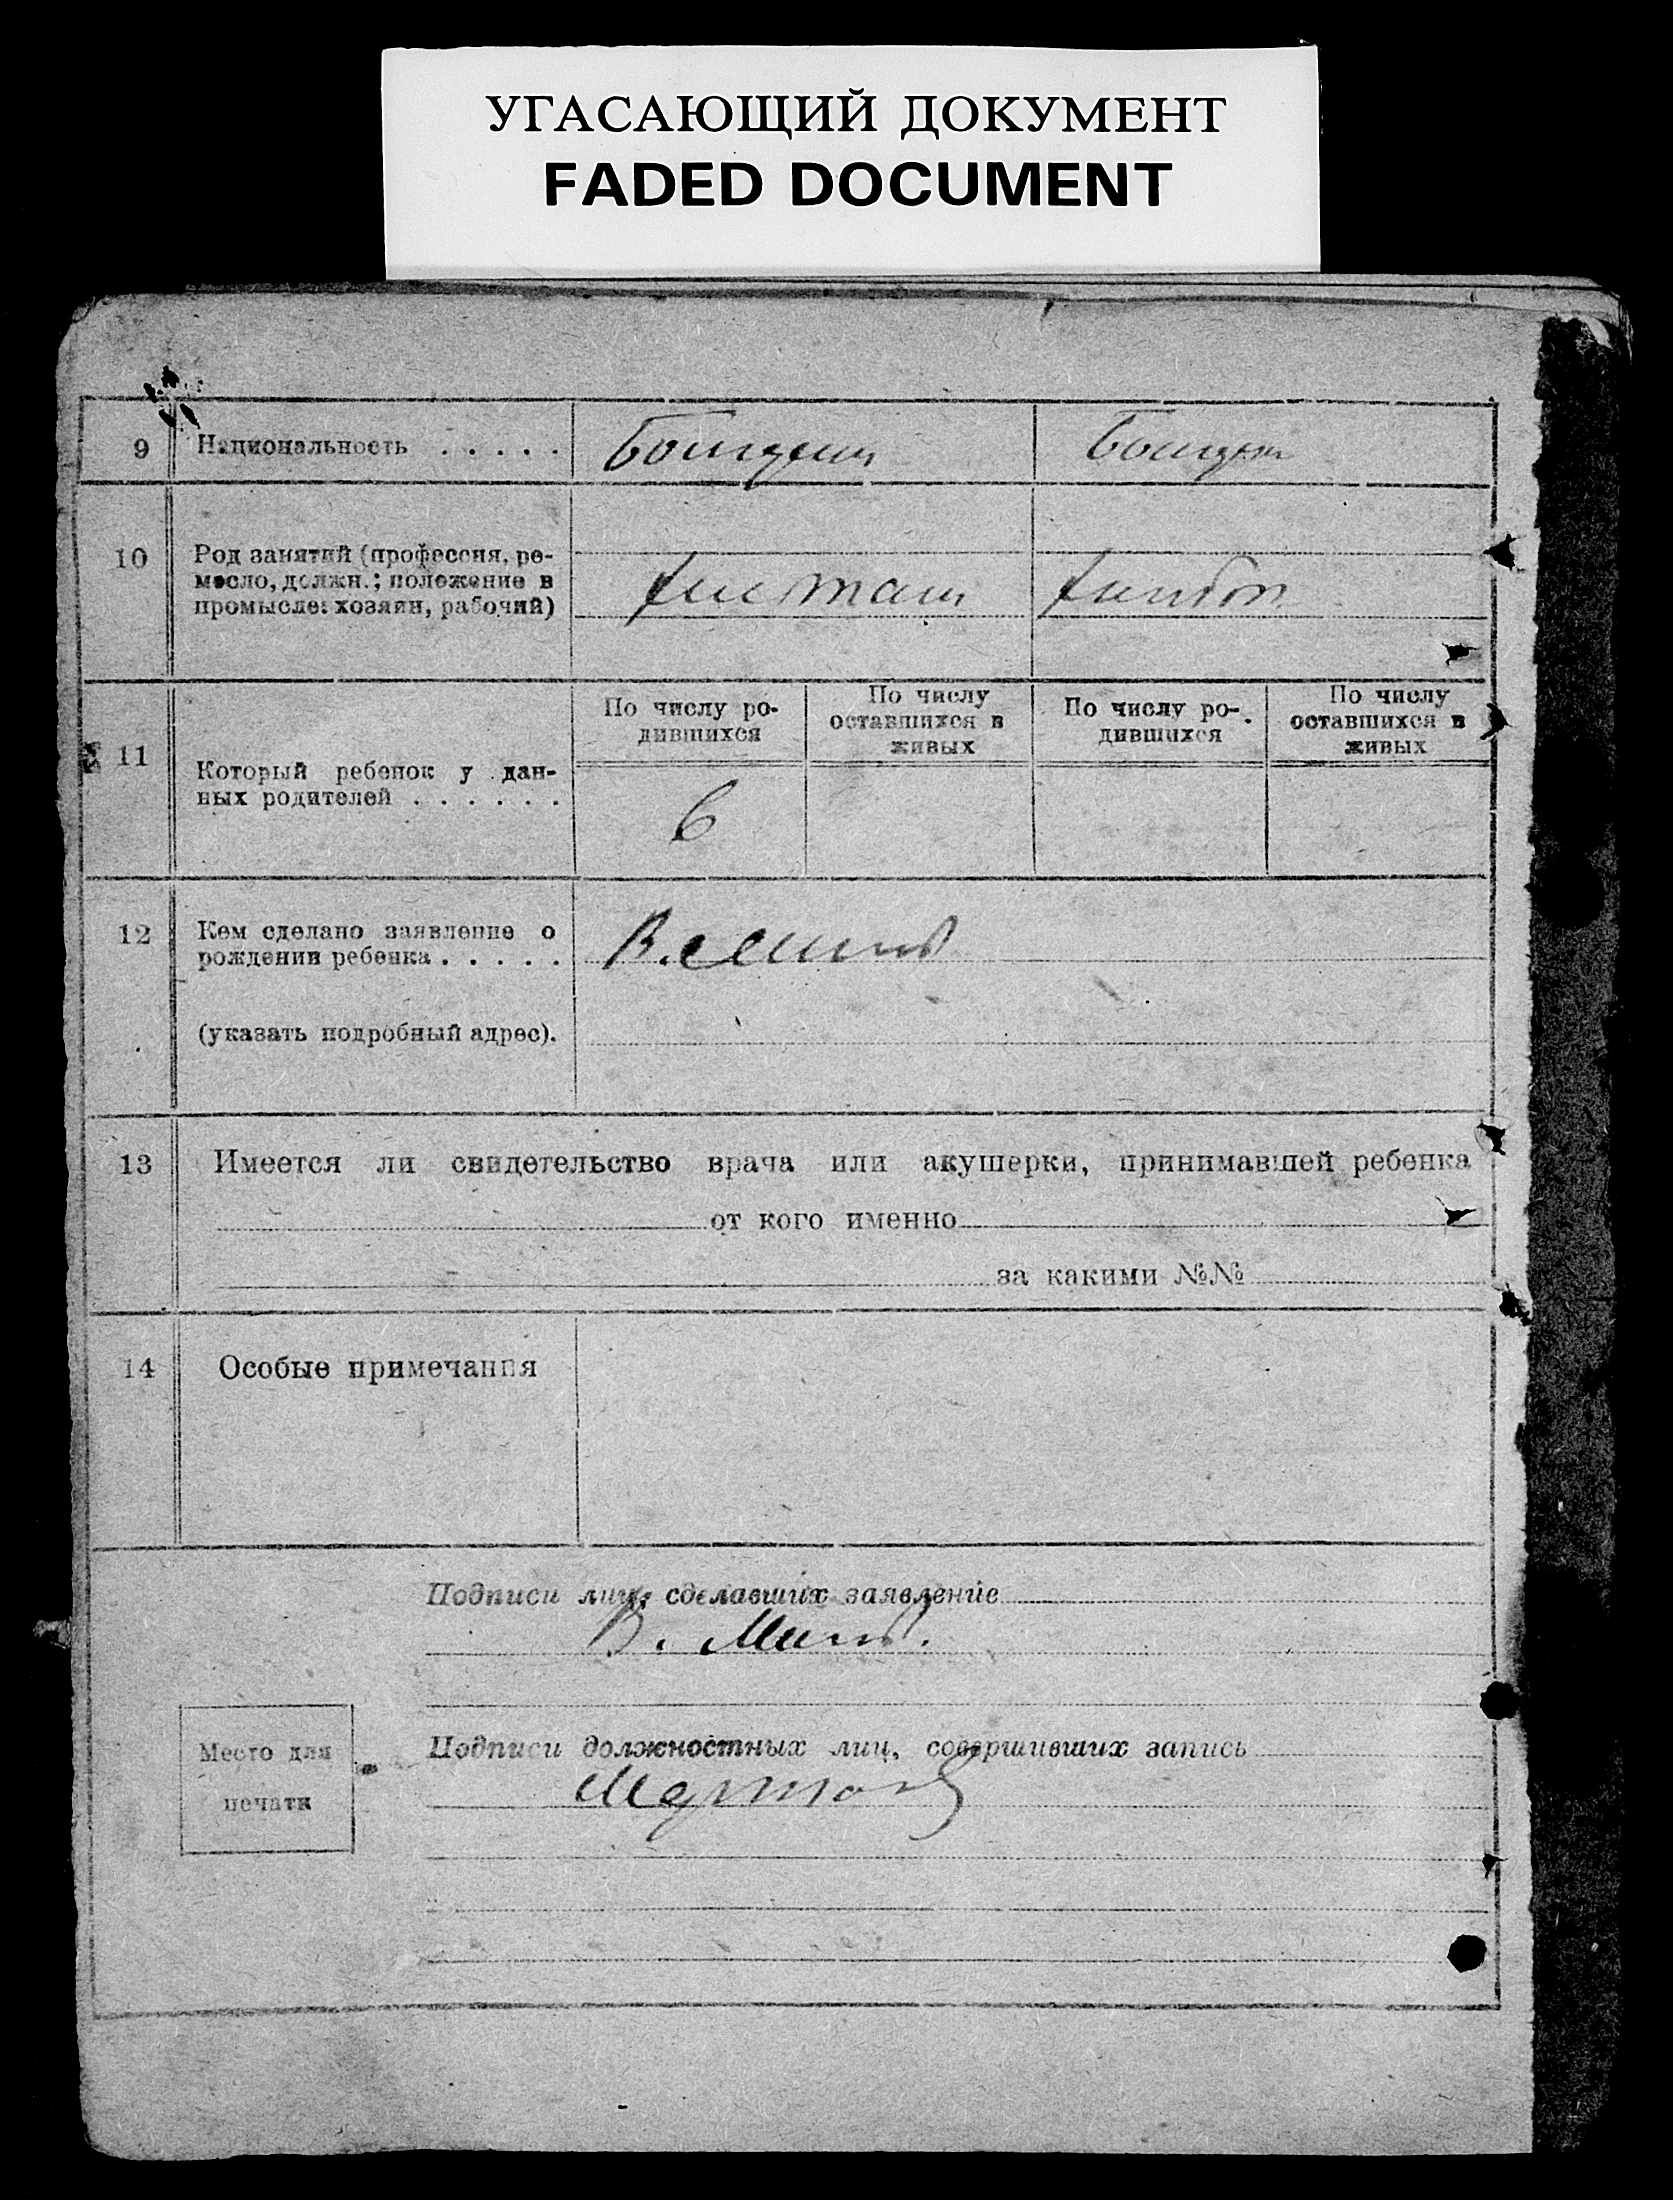 УГАСАЮЩИЙ ДОКУМЕНТ
FADED DOCUMENT
9 Национальность . . . . .
10 Род занятий (профессия, ре-
месло, должн.; положение в
промысле: хозяин, рабочий)
По числу ро-
дившихся
По числу
оставшихся в
живых
По числу ро-
дившихся
По числу
оставшихся в
живых
11 Который ребенок у дан-
ных родителей . . . . . .
6
12 Кем сделано заявление о
рождении ребенка . . . . .
(указать подробный адрес).
13 Имеется ли свидетельство врача или акушерки, принимавшей ребенка
от кого именно
за какими №№
14 Особые примечания
Подписи лиц, сделавших заявление
В.
Место для
печати
Подписи должностных лиц, совершивших запись